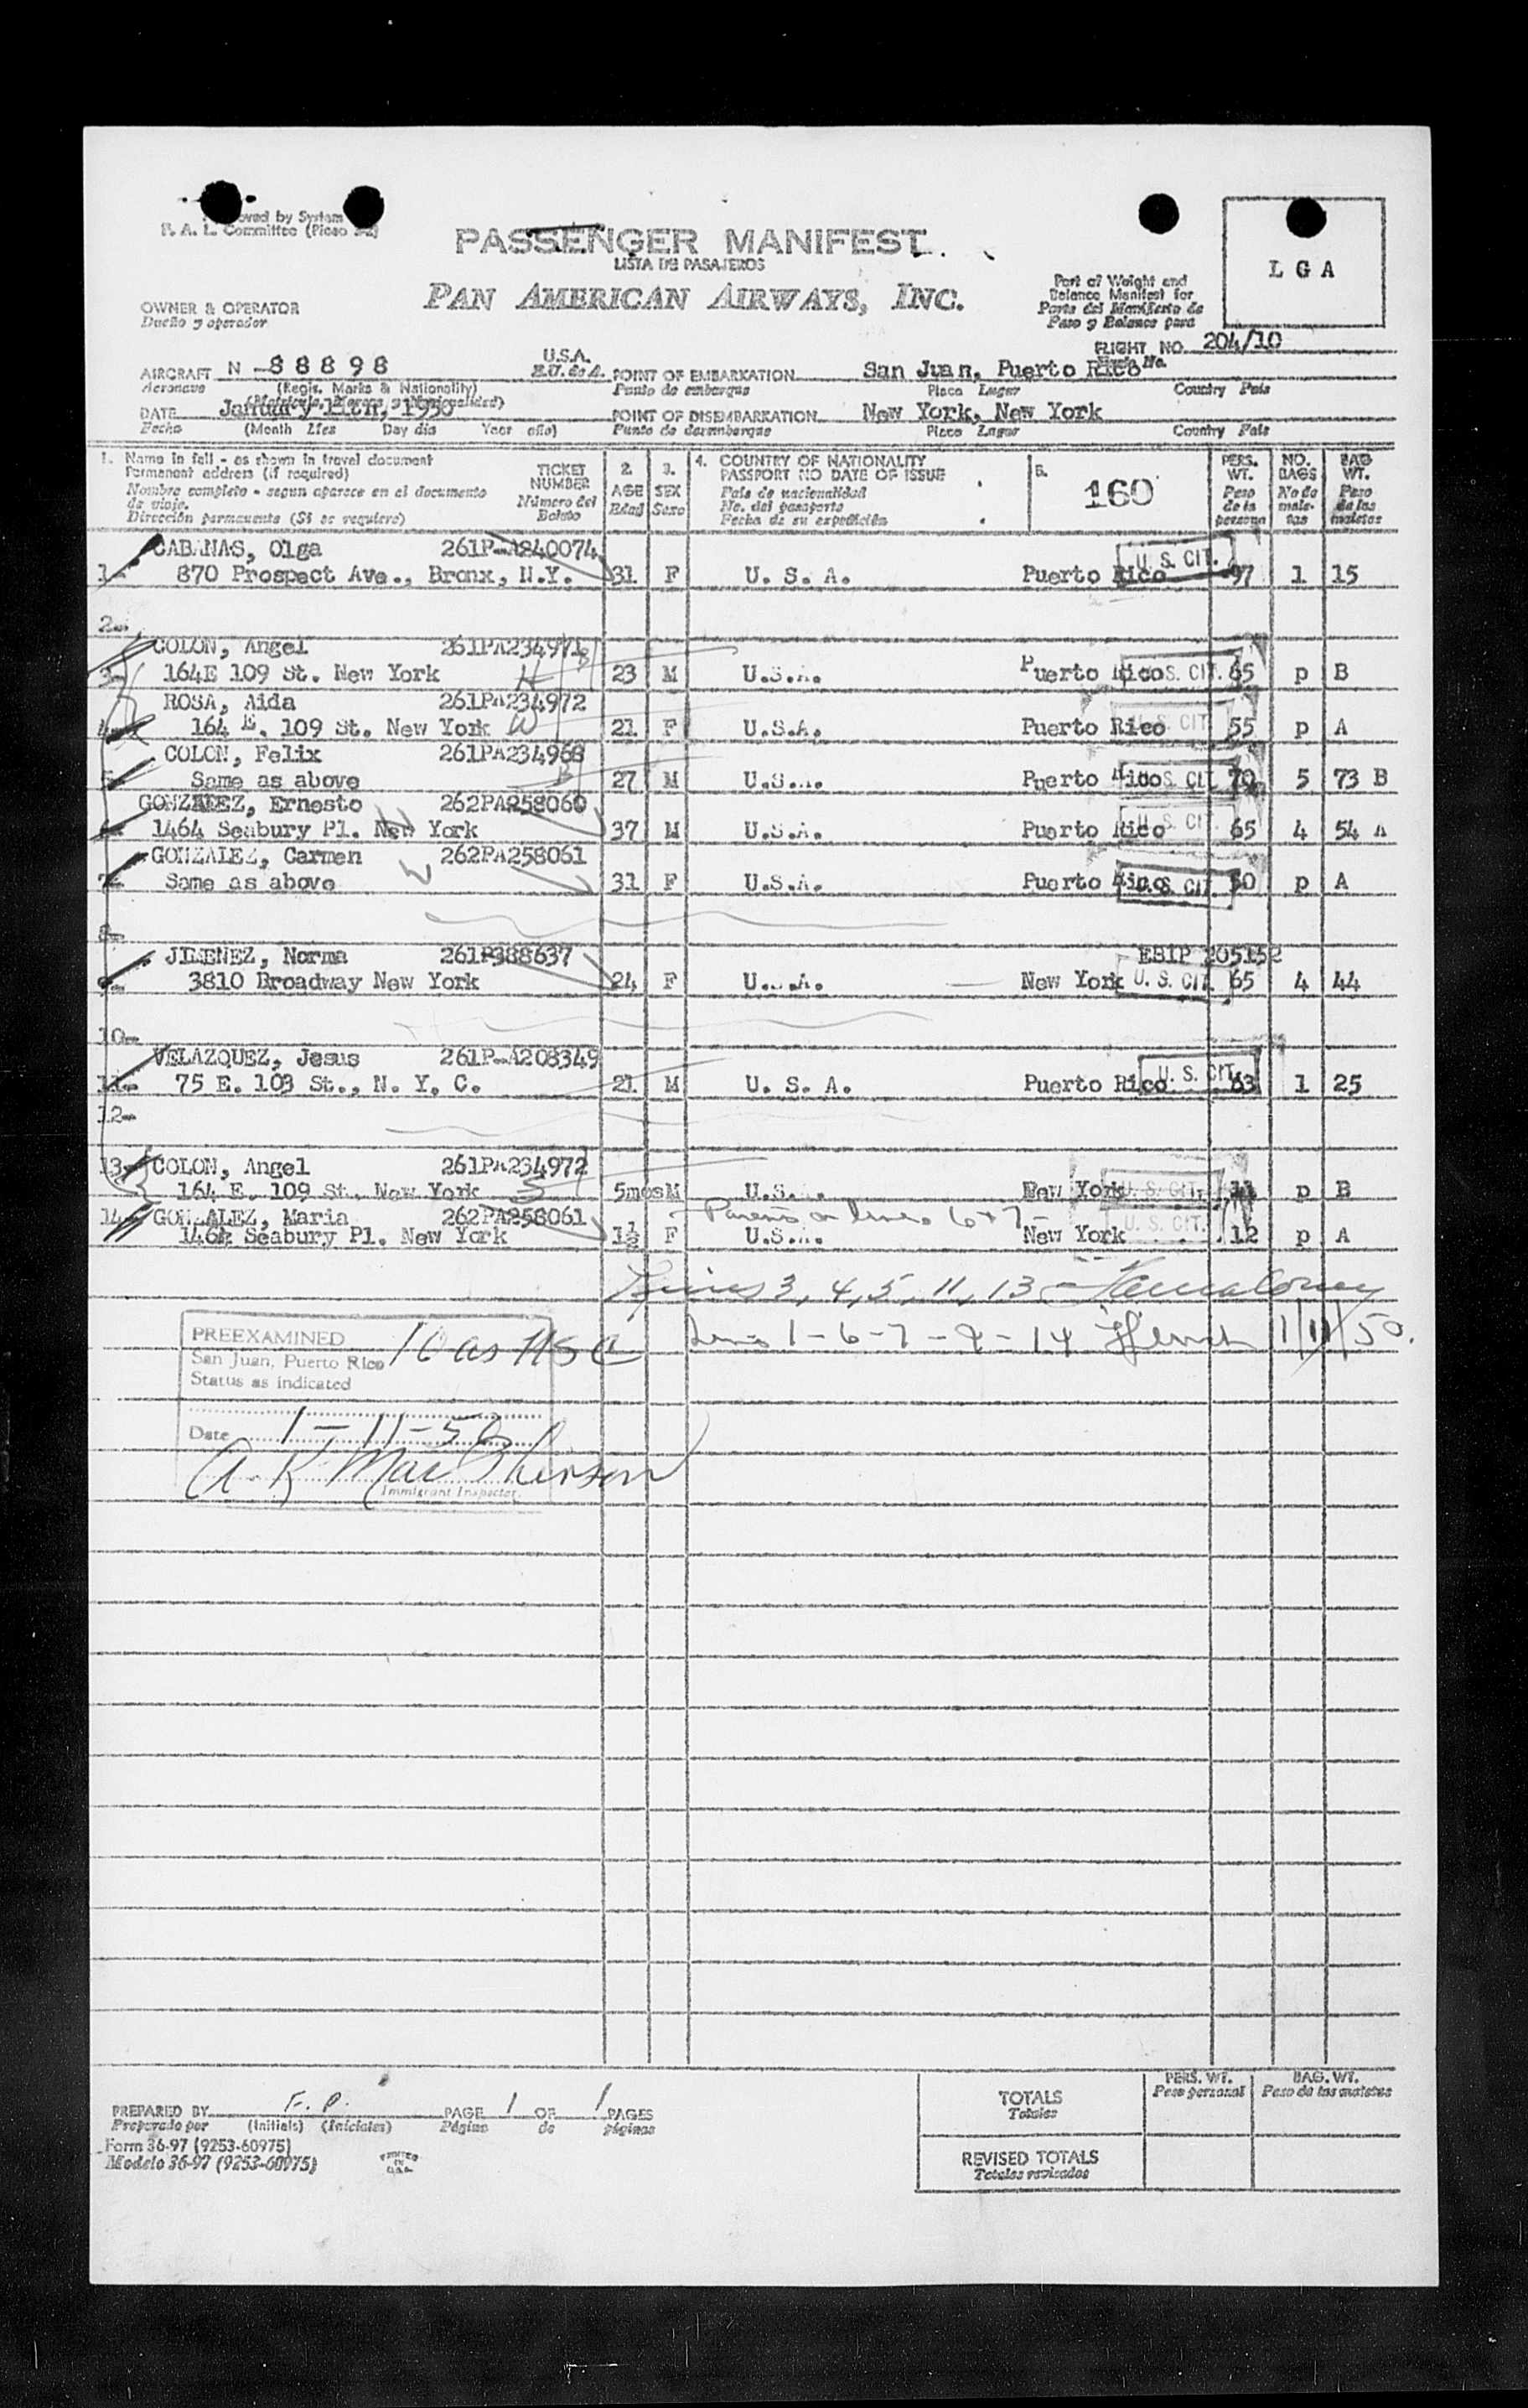 oved by System
P. A. L. Committee (Picao
PASSENGER MANIFEST
LISTA DE PASAJEROS
PAN AMERICAN AIRWAYS, INC.
L G A
Part of Weight and
Balance Manifest for
Parte del Manifiesto de
Peso y Balance para
OWNER & OPERATOR
Dueño y operador
FLIGHT NO. 204/10
AIRCRAFT N -88898 U.S.A. POINT OF EMBARKATION San Juan, Puerto Rico
Aeronave (Regis. Marks & Nationality) E.U. de A. Punto de embarque Place Lugar Country País
DATE January 11th, 1950 POINT OF DISEMBARKATION New York, New York
Fecha (Month Mes Day día Year año) Punto de desembarque Place Lugar Country País
1. Name in full - as shown in travel document
Permanent address (if required)
Nombre completo - segun aparece en el documento
de viaje.
Dirección permanente (Si se requiere)
TICKET
NUMBER
Número del
Boleto
2. AGE Edad
3. SEX Sexo
4. COUNTRY OF NATIONALITY
PASSPORT NO DATE OF ISSUE
País de nacionalidad
No. del pasaporte
Fecha de su expedición
160
PERS. WT. Peso de la persona
NO. BAGS No de maletas
BAG WT. Peso de las maletas
CABANAS, Olga 261P-A840074
1- 870 Prospect Ave., Bronx, N.Y. 31 F U. S. A. Puerto Rico U. S. CIT. 97 1 15
2-
COLON, Angel 261PA234971
3- 164E 109 St. New York H 23 M U.S.A. Puerto Rico U. S. CIT. 65 p B
ROSA, Aida 261PA234972
4- 164 E. 109 St. New York W 21 F U.S.A. Puerto Rico U. S. CIT. 55 p A
COLON, Felix 261PA234968
5- Same as above 27 M U.S.A. Puerto Rico U. S. CIT. 70 5 73 B
GONZALEZ, Ernesto 262PA258060
6- 1464 Seabury Pl. New York 37 M U.S.A. Puerto Rico U. S. CIT. 65 4 54 A
GONZALEZ, Carmen 262PA258061
7- Same as above W 31 F U.S.A. Puerto Rico U. S. CIT. 50 p A
8-
JIMENEZ, Norma 261P388637 EBIP 205152
9- 3810 Broadway New York 24 F U.S.A. New York U. S. CIT. 65 4 44
10-
VELAZQUEZ, Jesus 261P-A208349
11- 75 E. 103 St., N. Y. C. 21 M U. S. A. Puerto Rico U. S. CIT. 63 1 25
12-
13- COLON, Angel 261PA234972
164 E. 109 St. New York S 5mos M U.S. New York U. S. CIT. 11 p B
14- GONZALEZ, Maria 262PA258061 Parents on lines 6+7-
1464 Seabury Pl. New York 1½ F U.S.A. New York U. S. CIT. 12 p A
Lines 3, 4, 5, 11, 13
Lines 1-6-7-9-14 1/11/50.
PREEXAMINED
San Juan, Puerto Rico 10 as USC
Status as indicated
Date 1-11-50
A. R. MacPherson
Immigrant Inspector.
PREPARED BY F. P. PAGE 1 OF 1 PAGES
Preparado por (Initials) (Iniciales) Página de páginas
Form 36-97 (9253-60975)
Modelo 36-97 (9253-60975)
PRINTED IN U.S.A.
PERS. WT. Peso personal
BAG. WT. Peso de las maletas
TOTALS
Totales
REVISED TOTALS
Totales revisados